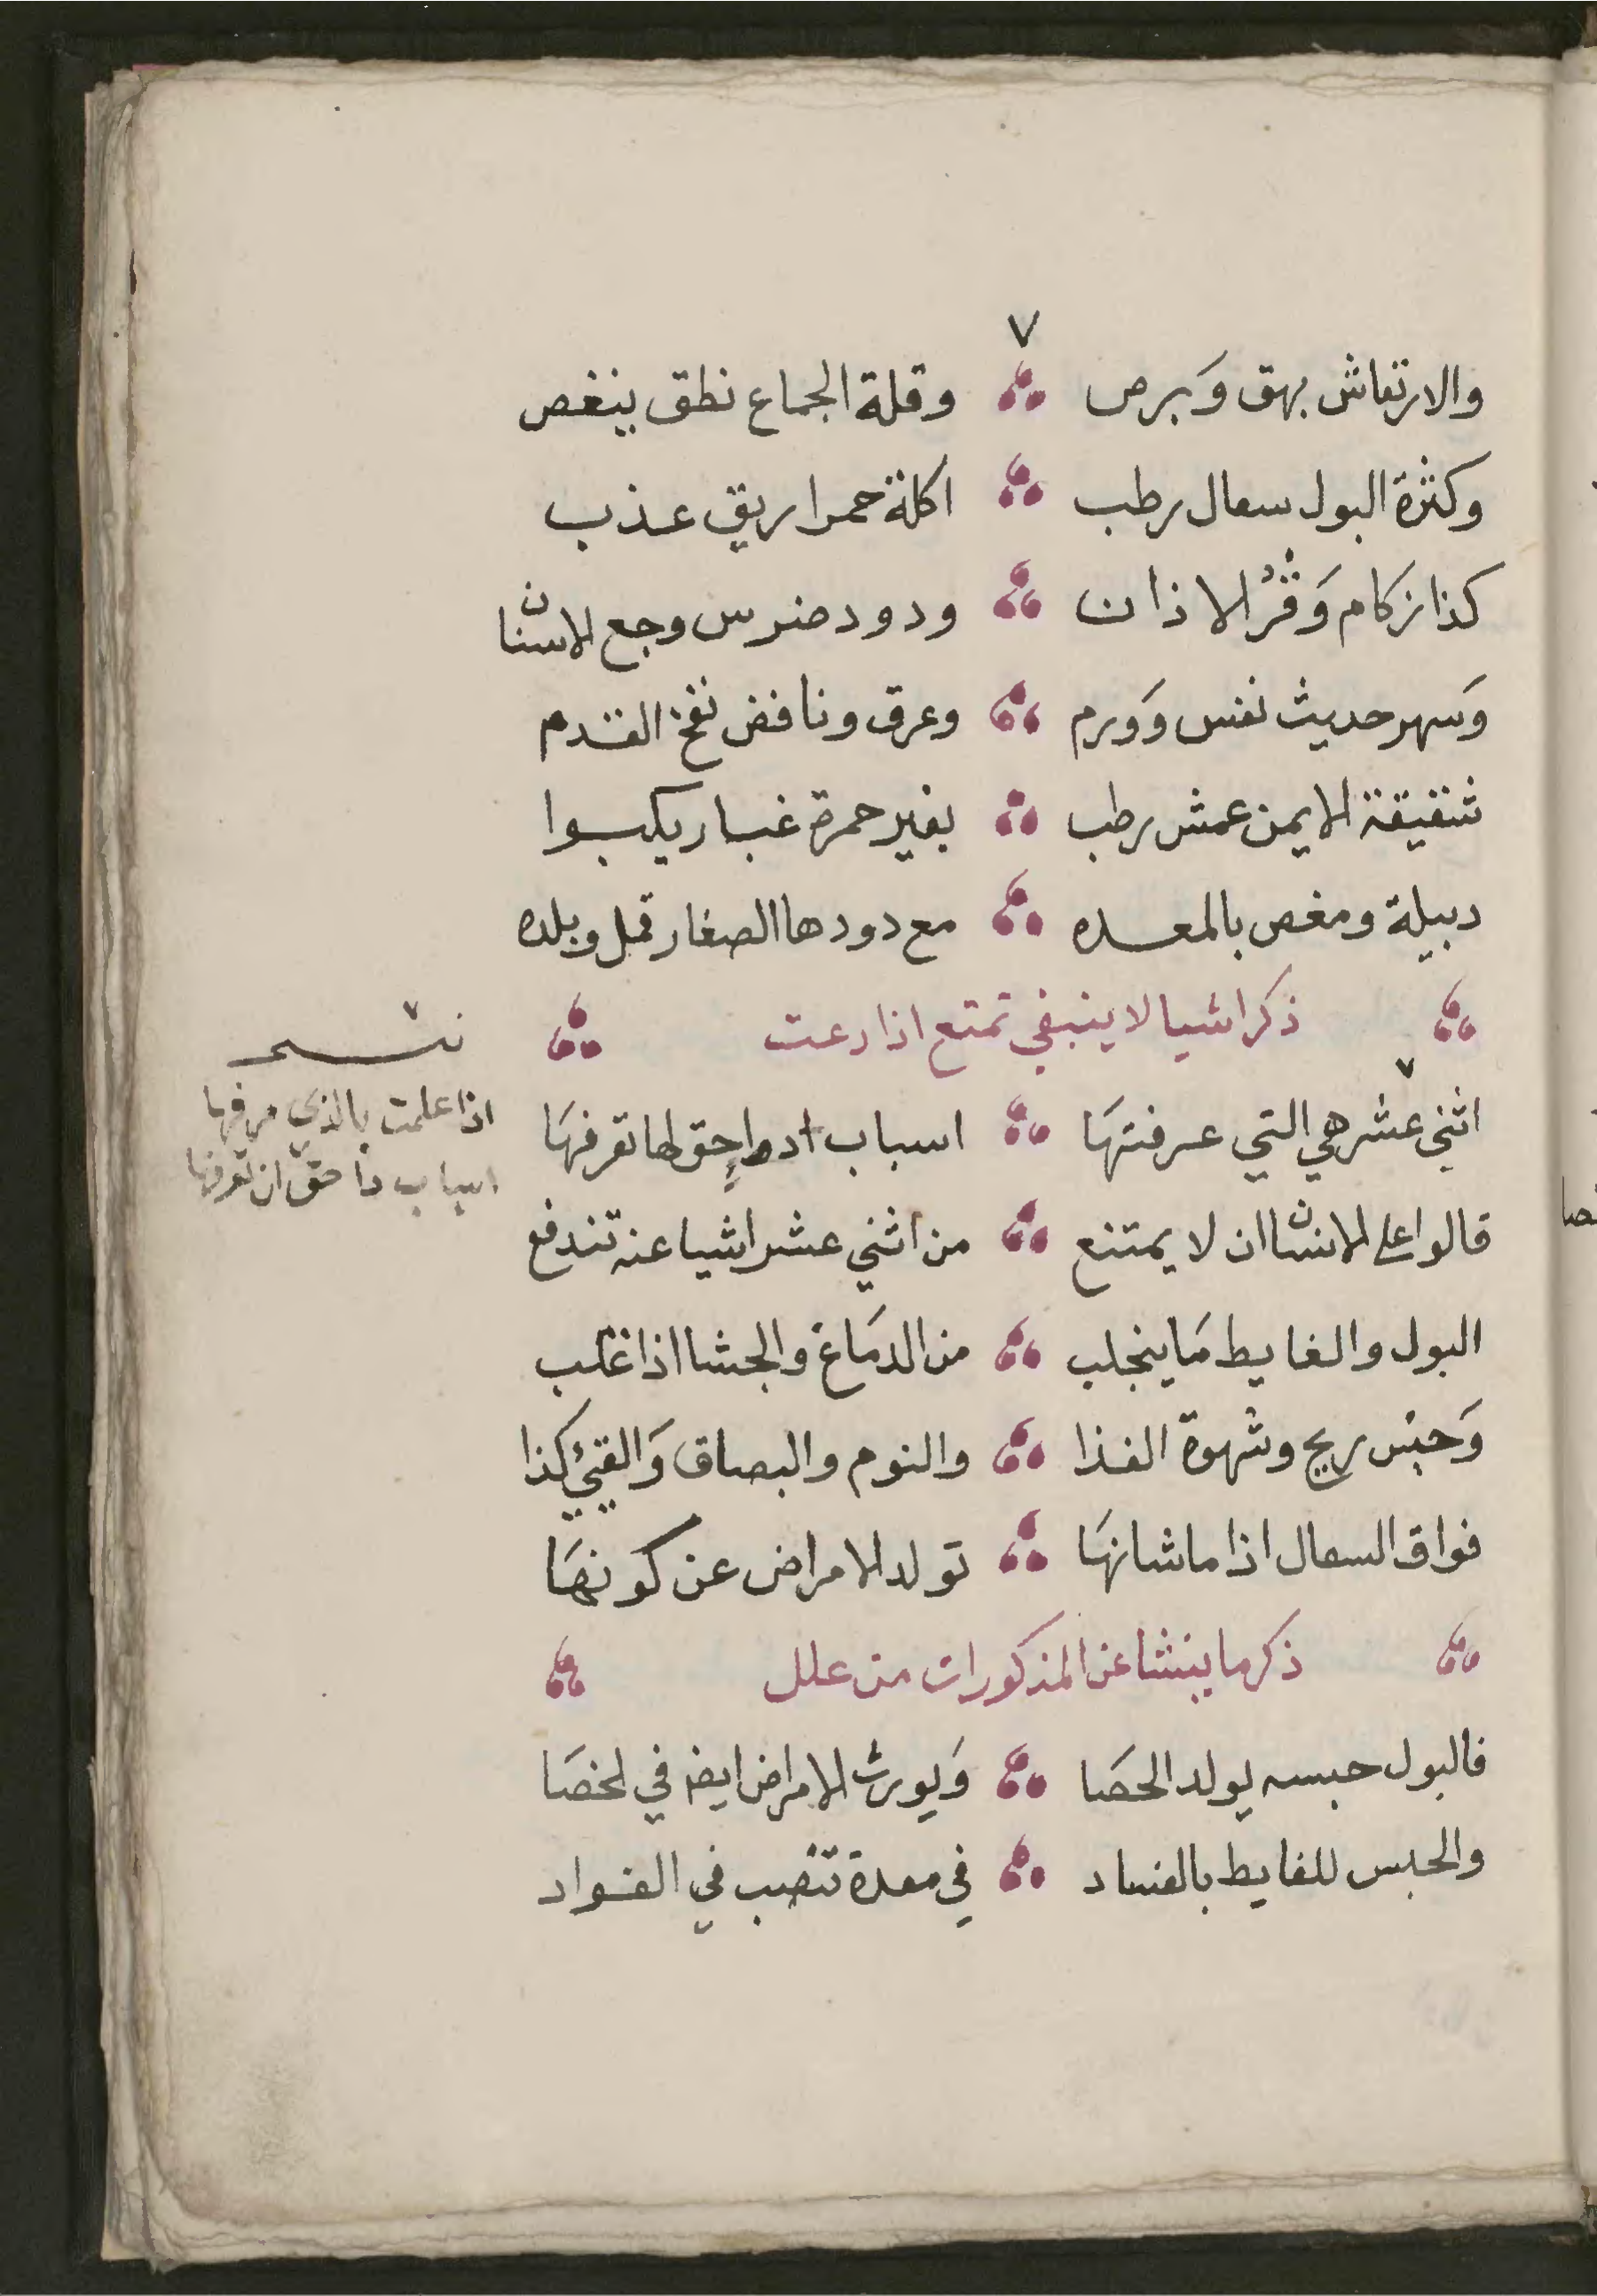 ٧
والارتعاش بهق وَبرص وقلة الجماع نطق ينغص
وكثرة البول سعال رطب اكلة حمرا ريق عذب
كذا زكام وَقْرُ الاذان ودود ضرس وجع الاسنان
وَسهر حديث نفس وَورم وعرق ونافض نفخ القدم
شقيقة الايمن عمش رطب بغير حمرة غبار يكبسوا
دبيلة ومغص بالمعده مع دودها الصغار قمل وبلده
ذكر اشيا لا ينبغي تمتع اذا رعت
اثني عشر هي التي عرفتهَا اسباب ادوا حق لها تعرفهَا
قالوا على الانسان ان لا يمتنع من اثني عشر اشيا عنه تندفع
البول والغايط مَا ينجلب من الدمَاغ والجشا اذا غلب
وَحبْس ريح وشهوة الغذا والنوم والبصاق وَالقيئ كذا
فواق السعال اذا ما شانهَا تولد الامراض عن كونهَا
ذكر ما ينشا عن المذكورات من علل
فالبول حبسه يولد الحصَا وَيورث الامراض ايضا في لخصَا
والحبس للغايط بالفساد في معدة تنصب في الفواد
٧
اذا علمت بالذي مر فيها
اسباب دا حق ان تعرفها